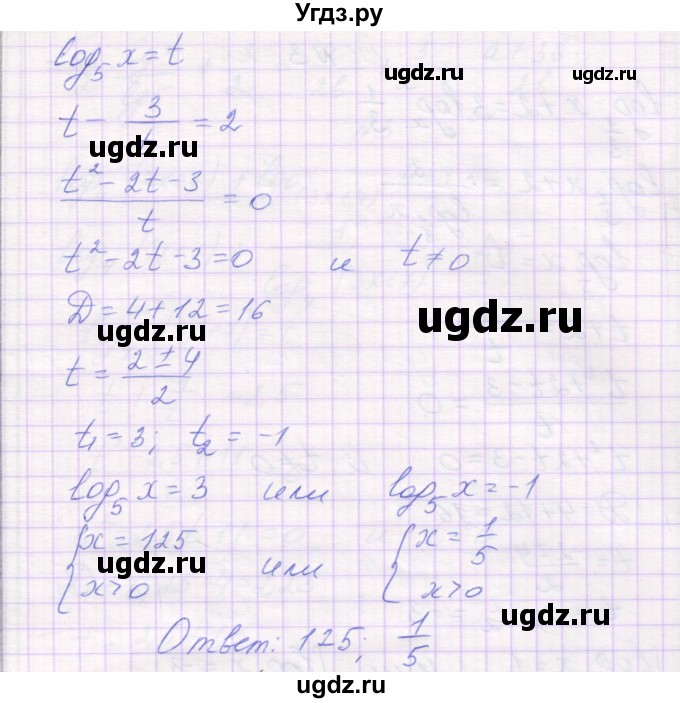 Угдз.ру
log₅ x = t
ugdz.ru ugdz.ru
t - 3/t = 2
ugdz.ru
(t² - 2t - 3)/t = 0
t² - 2t - 3 = 0 и t ≠ 0
D = 4 + 12 = 16
ugdz.ru ugdz.ru
t = (2 ± 4)/2
t₁ = 3; t₂ = -1
log₅ x = 3 или log₅ x = -1
{ x = 125 { x = 1/5
ugdz.ru или ugdz.ru
x > 0 x > 0
Ответ: 125; 1/5
ugdz.ru ugdz.ru
ugdz.ru